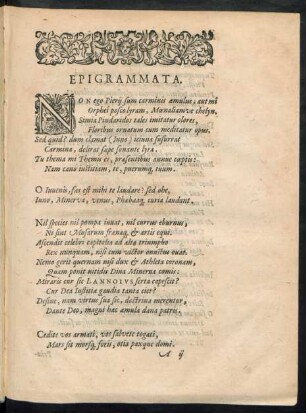 EPIGRAMMATA.
NON ego Pierij sum carminis æmulus, aut mi
Orphei posco lyram, Mænaliamve chelyn,
Simia Pindaridos tales imitatur olores,
Floribus ornatum cum meditatur opus.
Sed quid? dum clamat (Inno) icinna susurrat
Carmina, delirat sæpe sonante lyra.
Tu thema mi Themis es, præsentibus annue cœptis:
Nam cano iustitiam, te, puerumq, tuum.
O Iuvenis, fas est mihi te laudare? sed ohe,
Iuno, Minerva, venus, Phœbeaq. curia laudant.
Nil species nil pompa iuuat, nil currus eburnus,
Ni sint Musarum frænaq, & artis equi.
Ascendit celeber capitolia ad alta triumpho
Rex nunquam, nisi cum victor onustus ouat.
Nemo gerit quernam nisi dux & Athleta coronam,
Quam ponit nitidis Diua Minerva comis.
Miraris cur sic LANNOIVS serta capessit?
Cur Dea Iustitia gaudia tanta ciet?
Desine, nam virtus sua sic, doctrina merentur,
Dante Deo, magus hæc æmula dona patris.
Cedite vos armati, vos salvete togati,
Mars sit morsq, foris, otia paxque domi.
A ij